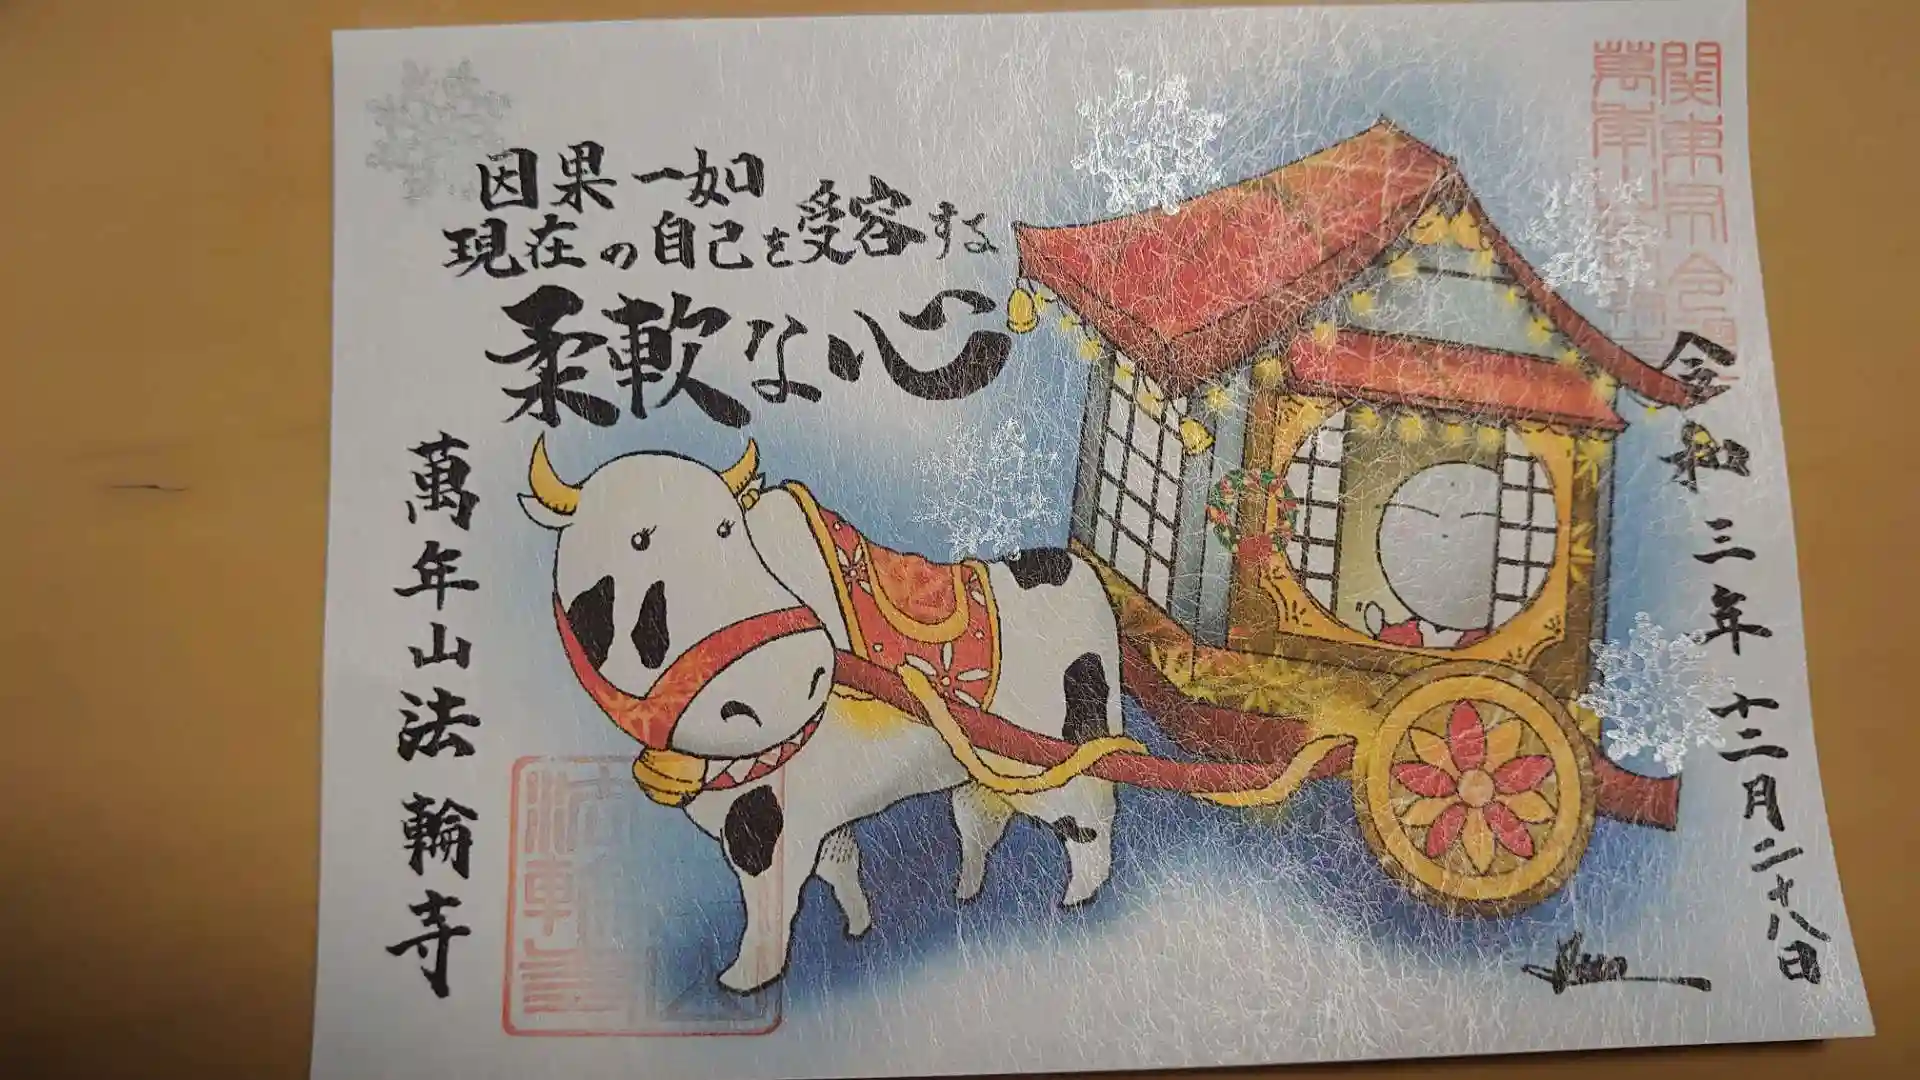 因果一如
現在の自己を受容する
柔軟な心
萬年山法輪寺
令和三年十二月二十八日